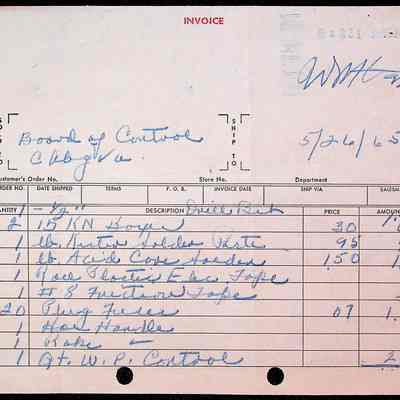 INVOICE
SHIP TO
Board of Control
5/26/65
Customer's Order No. Store No. Department
ORDER NO. DATE SHIPPED TERMS F.O.B. INVOICE DATE SHIP VIA SALESM
QUANTITY DESCRIPTION PRICE AMOUN
1 - 1/2" Drill Bit
2 15 KN 30 1.
1 lb. Solder Paste 95
1 lb. Acid Core Solder 150 1
1 Race Plastic Elec Tape
1 # 8 Friction Tape
20 Plug Fuses 07 1.
1 Hoe Handle
1 Rake -
1 Qt. W.P. Control 2